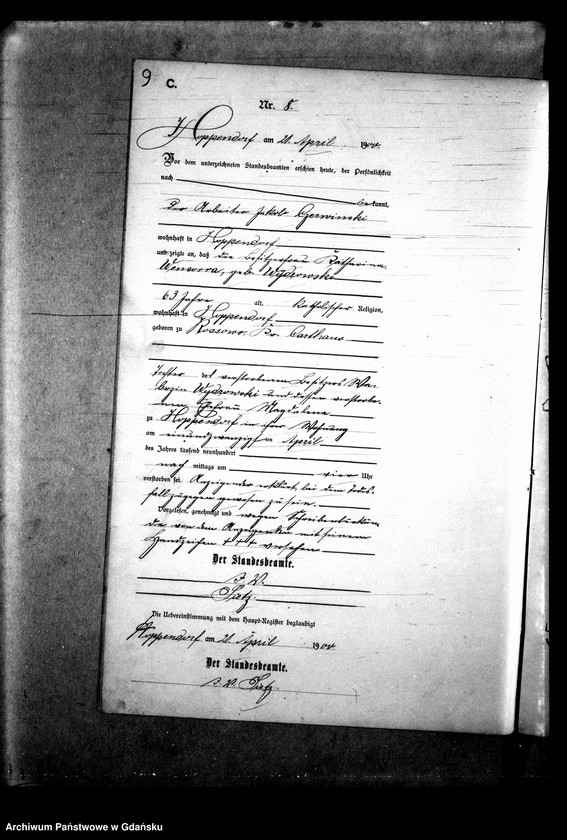 9 C.
Nr. 8.
Hoppendorf am 21. April 1900
Vor dem unterzeichneten Standesbeamten erschien heute, der Persönlichkeit
nach
bekannt,
der Arbeiter Jakob Czerwinski
wohnhaft in Hoppendorf
und zeigte an, daß die Besitzerfrau Katharina
geb. Wydrowski
63 Jahre alt, katholischer Religion,
wohnhaft in Hoppendorf
geboren zu Kr. Carthaus
Tochter des verstorbenen Besitzers
Wydrowski und dessen verstorbe-
Ehefrau Magdalena
zu Hoppendorf in ihrer Wohnung
am April
des Jahres tausend neunhundert
nach mittags um vier Uhr
verstorben sei. Anzeigender erklärt, bei dem Todes-
fall zugegen gewesen zu sein.
Vorgelesen, genehmigt und wegen Schreibensunkun-
de von dem Anzeigenden mit seinem
Handzeichen +++ versehen
Der Standesbeamte.
i. V.
Die Uebereinstimmung mit dem Haupt-Register beglaubigt
Hoppendorf am 21. April 1900
Der Standesbeamte.
i. V.
Archiwum Państwowe w Gdańsku